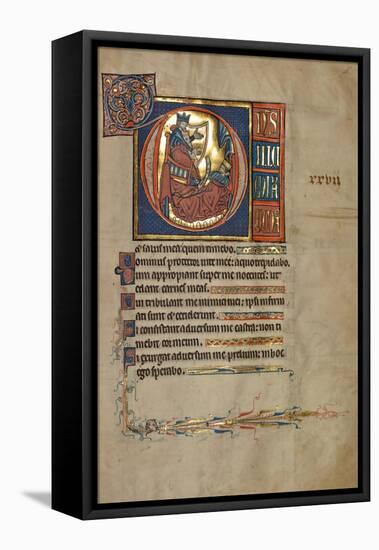 xxvii
et salus mea quem timebo.
ominus protector vite mee: a quo trepidabo
um appropiant super me nocentes: ut
edant carnes meas.
ui tribulant me inimici mei: ipsi infirm
ati sunt et ceciderunt.
i consistant adversum me castra: non ti
mebit cor meum.
i exurgat adversum me prelium: in hoc
ego sperabo.